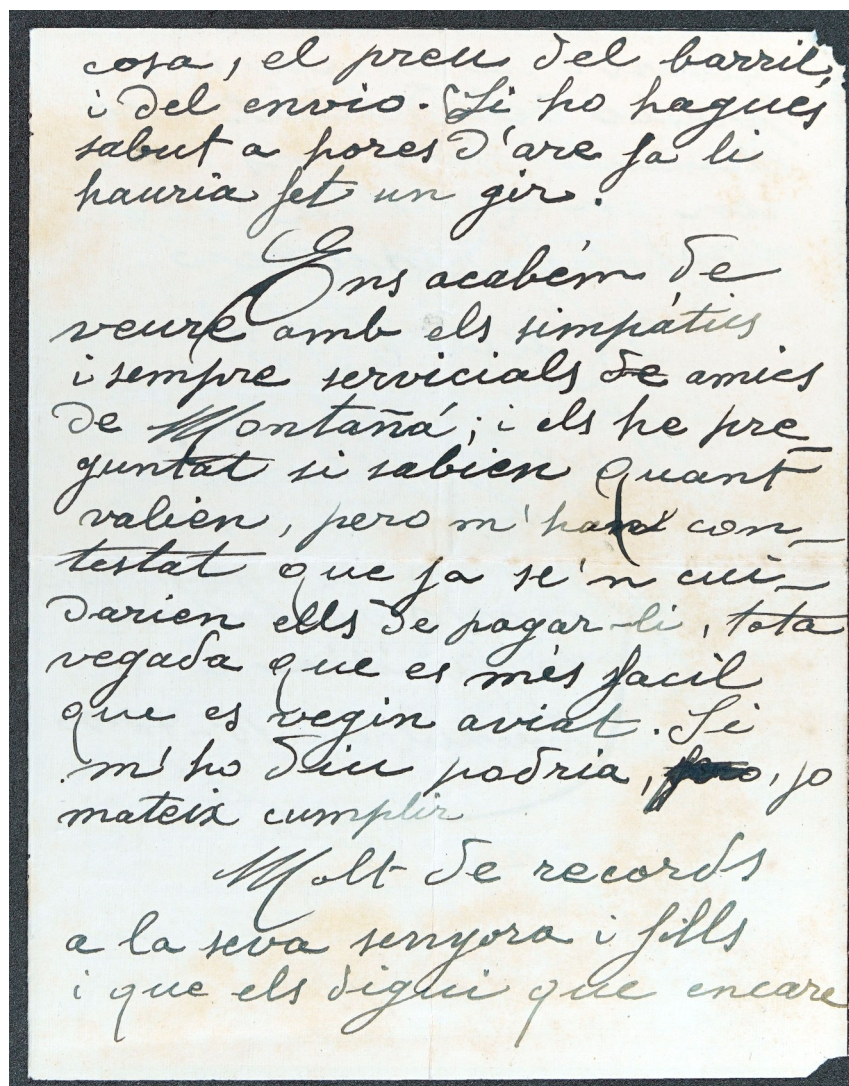 cosa, el preu del barril,
i del envio. Si ho hagués
sabut a hores d'are ja li
hauria fet un gir.
Ens acabém de
veure amb els simpátics
i sempre servicials de amics
de Montañá; i els he pre-
guntat si sabien quant
valien, pero m'han con-
testat que ja se'n cui-
darien ells de pagar-li, tota
vegada que es més facil
que es vegin aviat. Si
m'ho diu podria, , jo
mateix cumplir
Molt de records
a la seva senyora i fills
i que els digui que encare